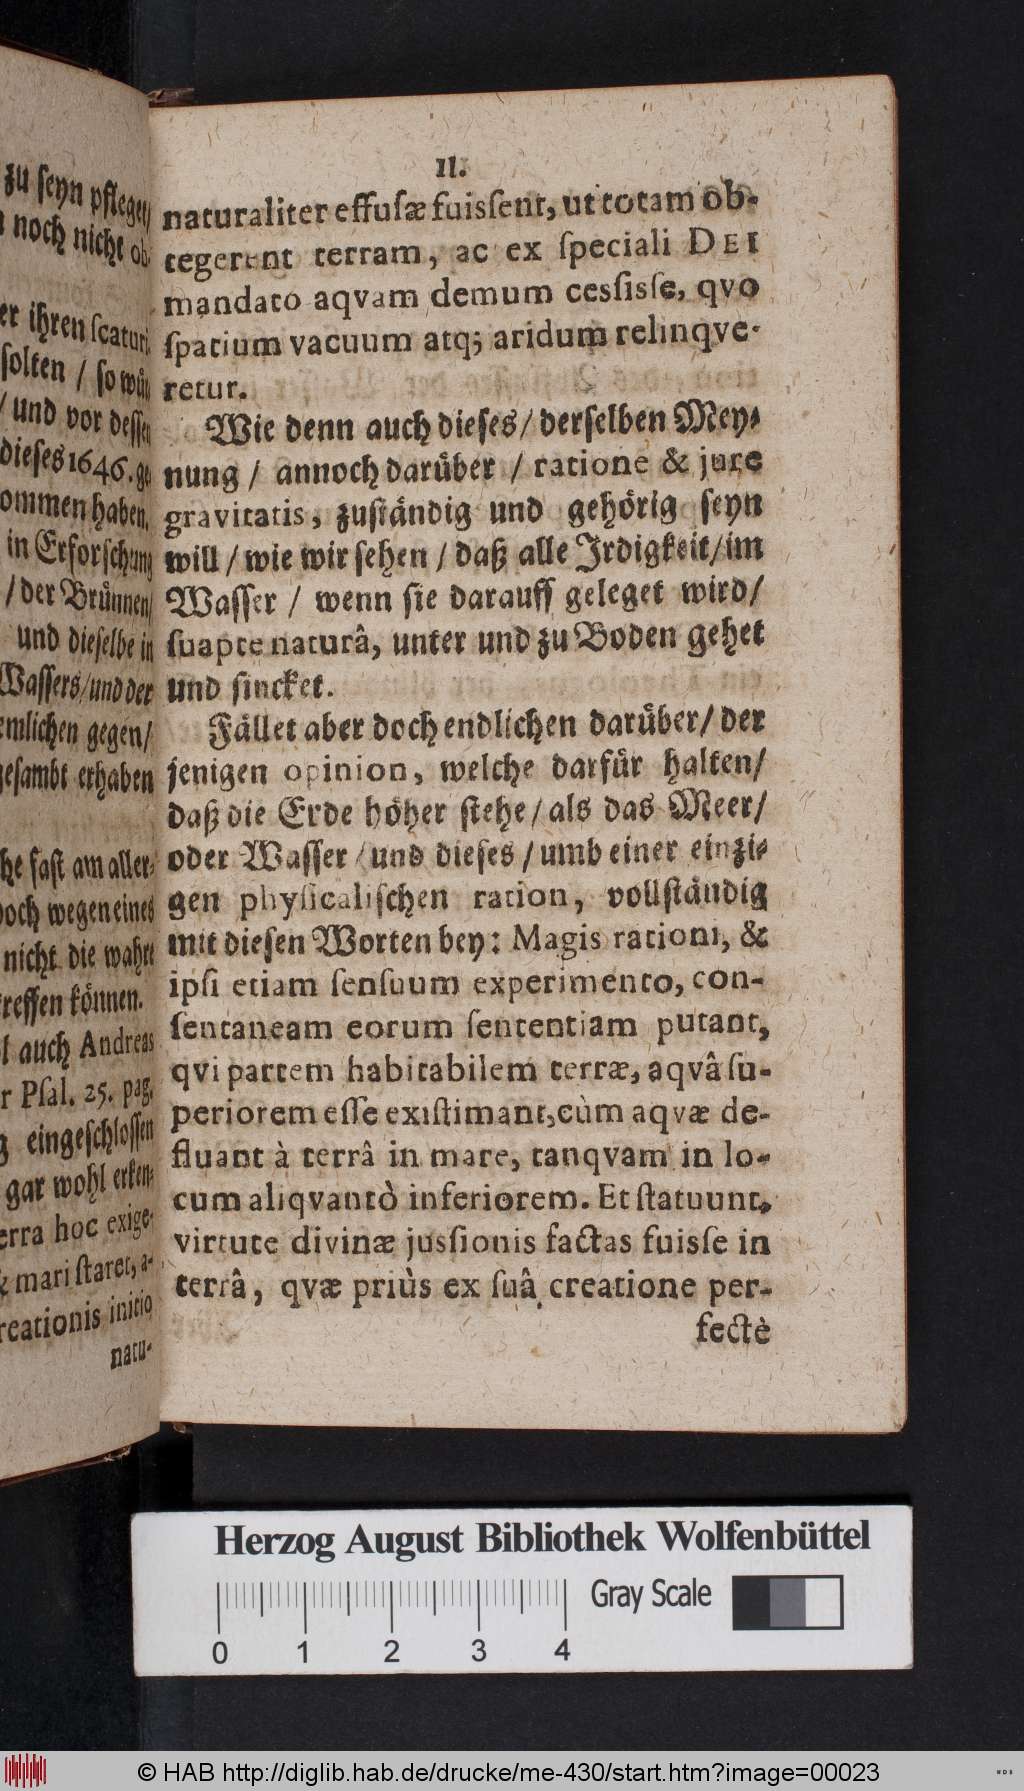 zu ſeyn pflegen/
noch nicht ob
er ihren ſcaturi
ſolten / ſo wür
/ und vor deſſen
dieſes 1646. ge
ommen haben,
in Erforſchung
/ der Brünnen/
und dieſelbe in
Waſſers/und der
emlichen gegen/
geſambt erhaben
he faſt am aller-
doch wegen eines
nicht die wahre
treffen können.
l auch Andreas
r Pſal. 25. pag.
g eingeſchloſſen
gar wohl erken-
erra hoc exige-
& mari ſtaret, a-
reationis initio
natu-
11.
naturaliter effuſæ fuisſent, ut totam ob-
tegerent terram, ac ex ſpeciali DEI
mandato aqvam demum cesſisſe, qvo
ſpatium vacuum atq; aridum relinqve-
retur.
Wie denn auch dieſes/ derſelben Mey-
nung / annoch darüber / ratione & jure
gravitatis, zuſtändig und gehörig ſeyn
will / wie wir ſehen / daß alle Irdigkeit/im
Waſſer / wenn ſie darauff geleget wird/
ſuapte naturâ, unter und zu Boden gehet
und ſincket.
Fället aber doch endlichen darüber/ der
jenigen opinion, welche darfür halten/
daß die Erde höher ſtehe / als das Meer/
oder Waſſer / und dieſes / umb einer einzi-
gen phyſicaliſchen ration, vollſtändig
mit dieſen Worten bey: Magis rationi, &
ipſi etiam ſenſuum experimento, con-
ſentaneam eorum ſententiam putant,
qvi partem habitabilem terræ, aqvâ ſu-
periorem eſſe exiſtimant, cùm aqvæ de-
fluant à terrâ in mare, tanqvam in lo-
cum aliqvantò inferiorem. Et ſtatuunt,
virtute divinæ jusſionis factas fuisſe in
terrâ, qvæ priùs ex ſuâ creatione per-
fectè
Herzog August Bibliothek Wolfenbüttel
Gray Scale
0 1 2 3 4
© HAB http://diglib.hab.de/drucke/me-430/start.htm?image=00023